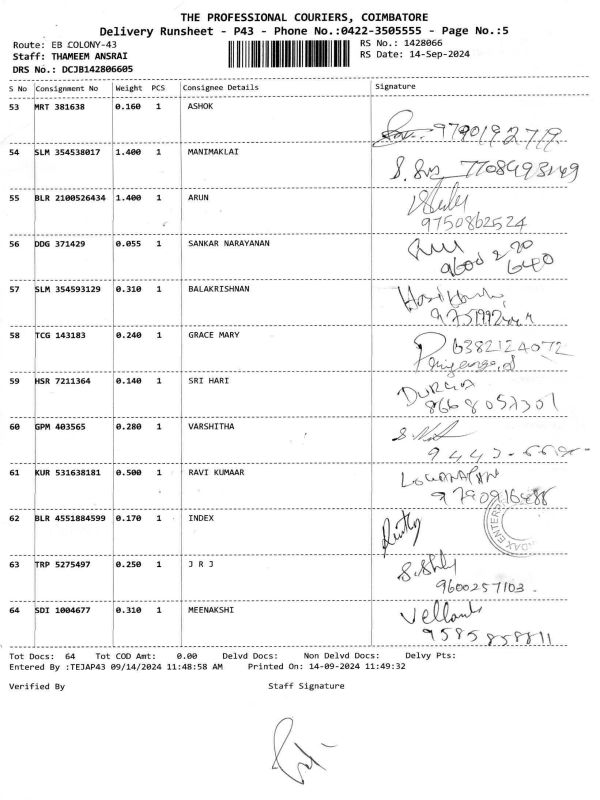 THE PROFESSIONAL COURIERS, COIMBATORE
Delivery Runsheet - P43 - Phone No.:0422-3505555 - Page No.:5
Route: EB COLONY-43 RS No.: 1428066
Staff: THAMEEM ANSRAI RS Date: 14-Sep-2024
DRS No.: DCJB142806605
S No Consignment No Weight PCS Consignee Details Signature
53 MRT 381638 0.160 1 ASHOK
9790192719
54 SLM 354538017 1.400 1 MANIMAKLAI
55 BLR 2100526434 1.400 1 ARUN
9750862524
56 DDG 371429 0.055 1 SANKAR NARAYANAN
640
57 SLM 354593129 0.310 1 BALAKRISHNAN
58 TCG 143183 0.240 1 GRACE MARY
6382124072
59 HSR 7211364 0.140 1 SRI HARI
DURGA
60 GPM 403565 0.280 1 VARSHITHA
61 KUR 531638181 0.500 1 RAVI KUMAAR
62 BLR 4551884599 0.170 1 INDEX
63 TRP 5275497 0.250 1 J R J
9600257103.
64 SDI 1004677 0.310 1 MEENAKSHI
9585858811
Tot Docs: 64 Tot COD Amt: 0.00 Delvd Docs: Non Delvd Docs: Delvy Pts:
Entered By :TEJAP43 09/14/2024 11:48:58 AM Printed On: 14-09-2024 11:49:32
Verified By Staff Signature